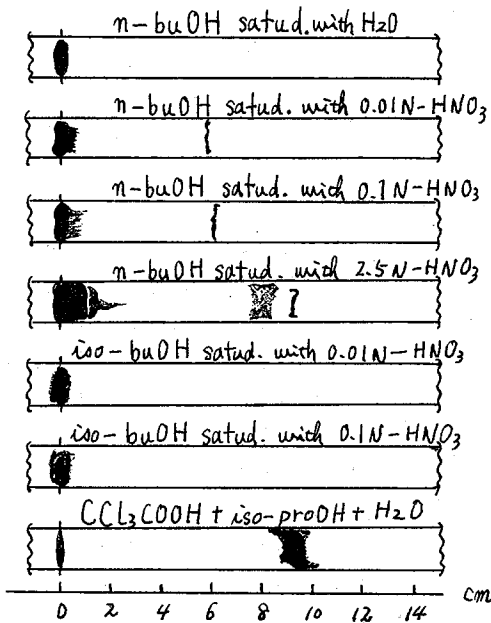 n-buOH satud. with H2O
n-buOH satud. with 0.01N-HNO3
n-buOH satud. wich 0.1N-HNO3
n-buOH satud. with 2.5N-HNO3
iso-buOH satud. with 0.01N-HNO3
iso-buOH satud. with 0.1N-HNO3
CCl3COOH + iso-proOH + H2O
0 2 4 6 8 10 12 14 cm